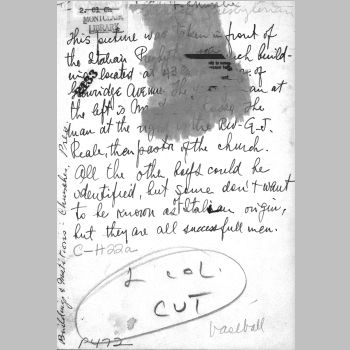 MONTCLAIR
LIBRARY
This picture was taken in front of
the Italian build-
ing located at of
Avenue. The man at
the left is the
man at the right is the Rev. G. J.
Reale, then pastor of the church.
All the other boys could be
identified, but some don't want
to be known as Italian origin,
but they are all successfull men.
C-H22a
2 col.
CUT
baseball
P472
Buildings & Institutions - Churches,